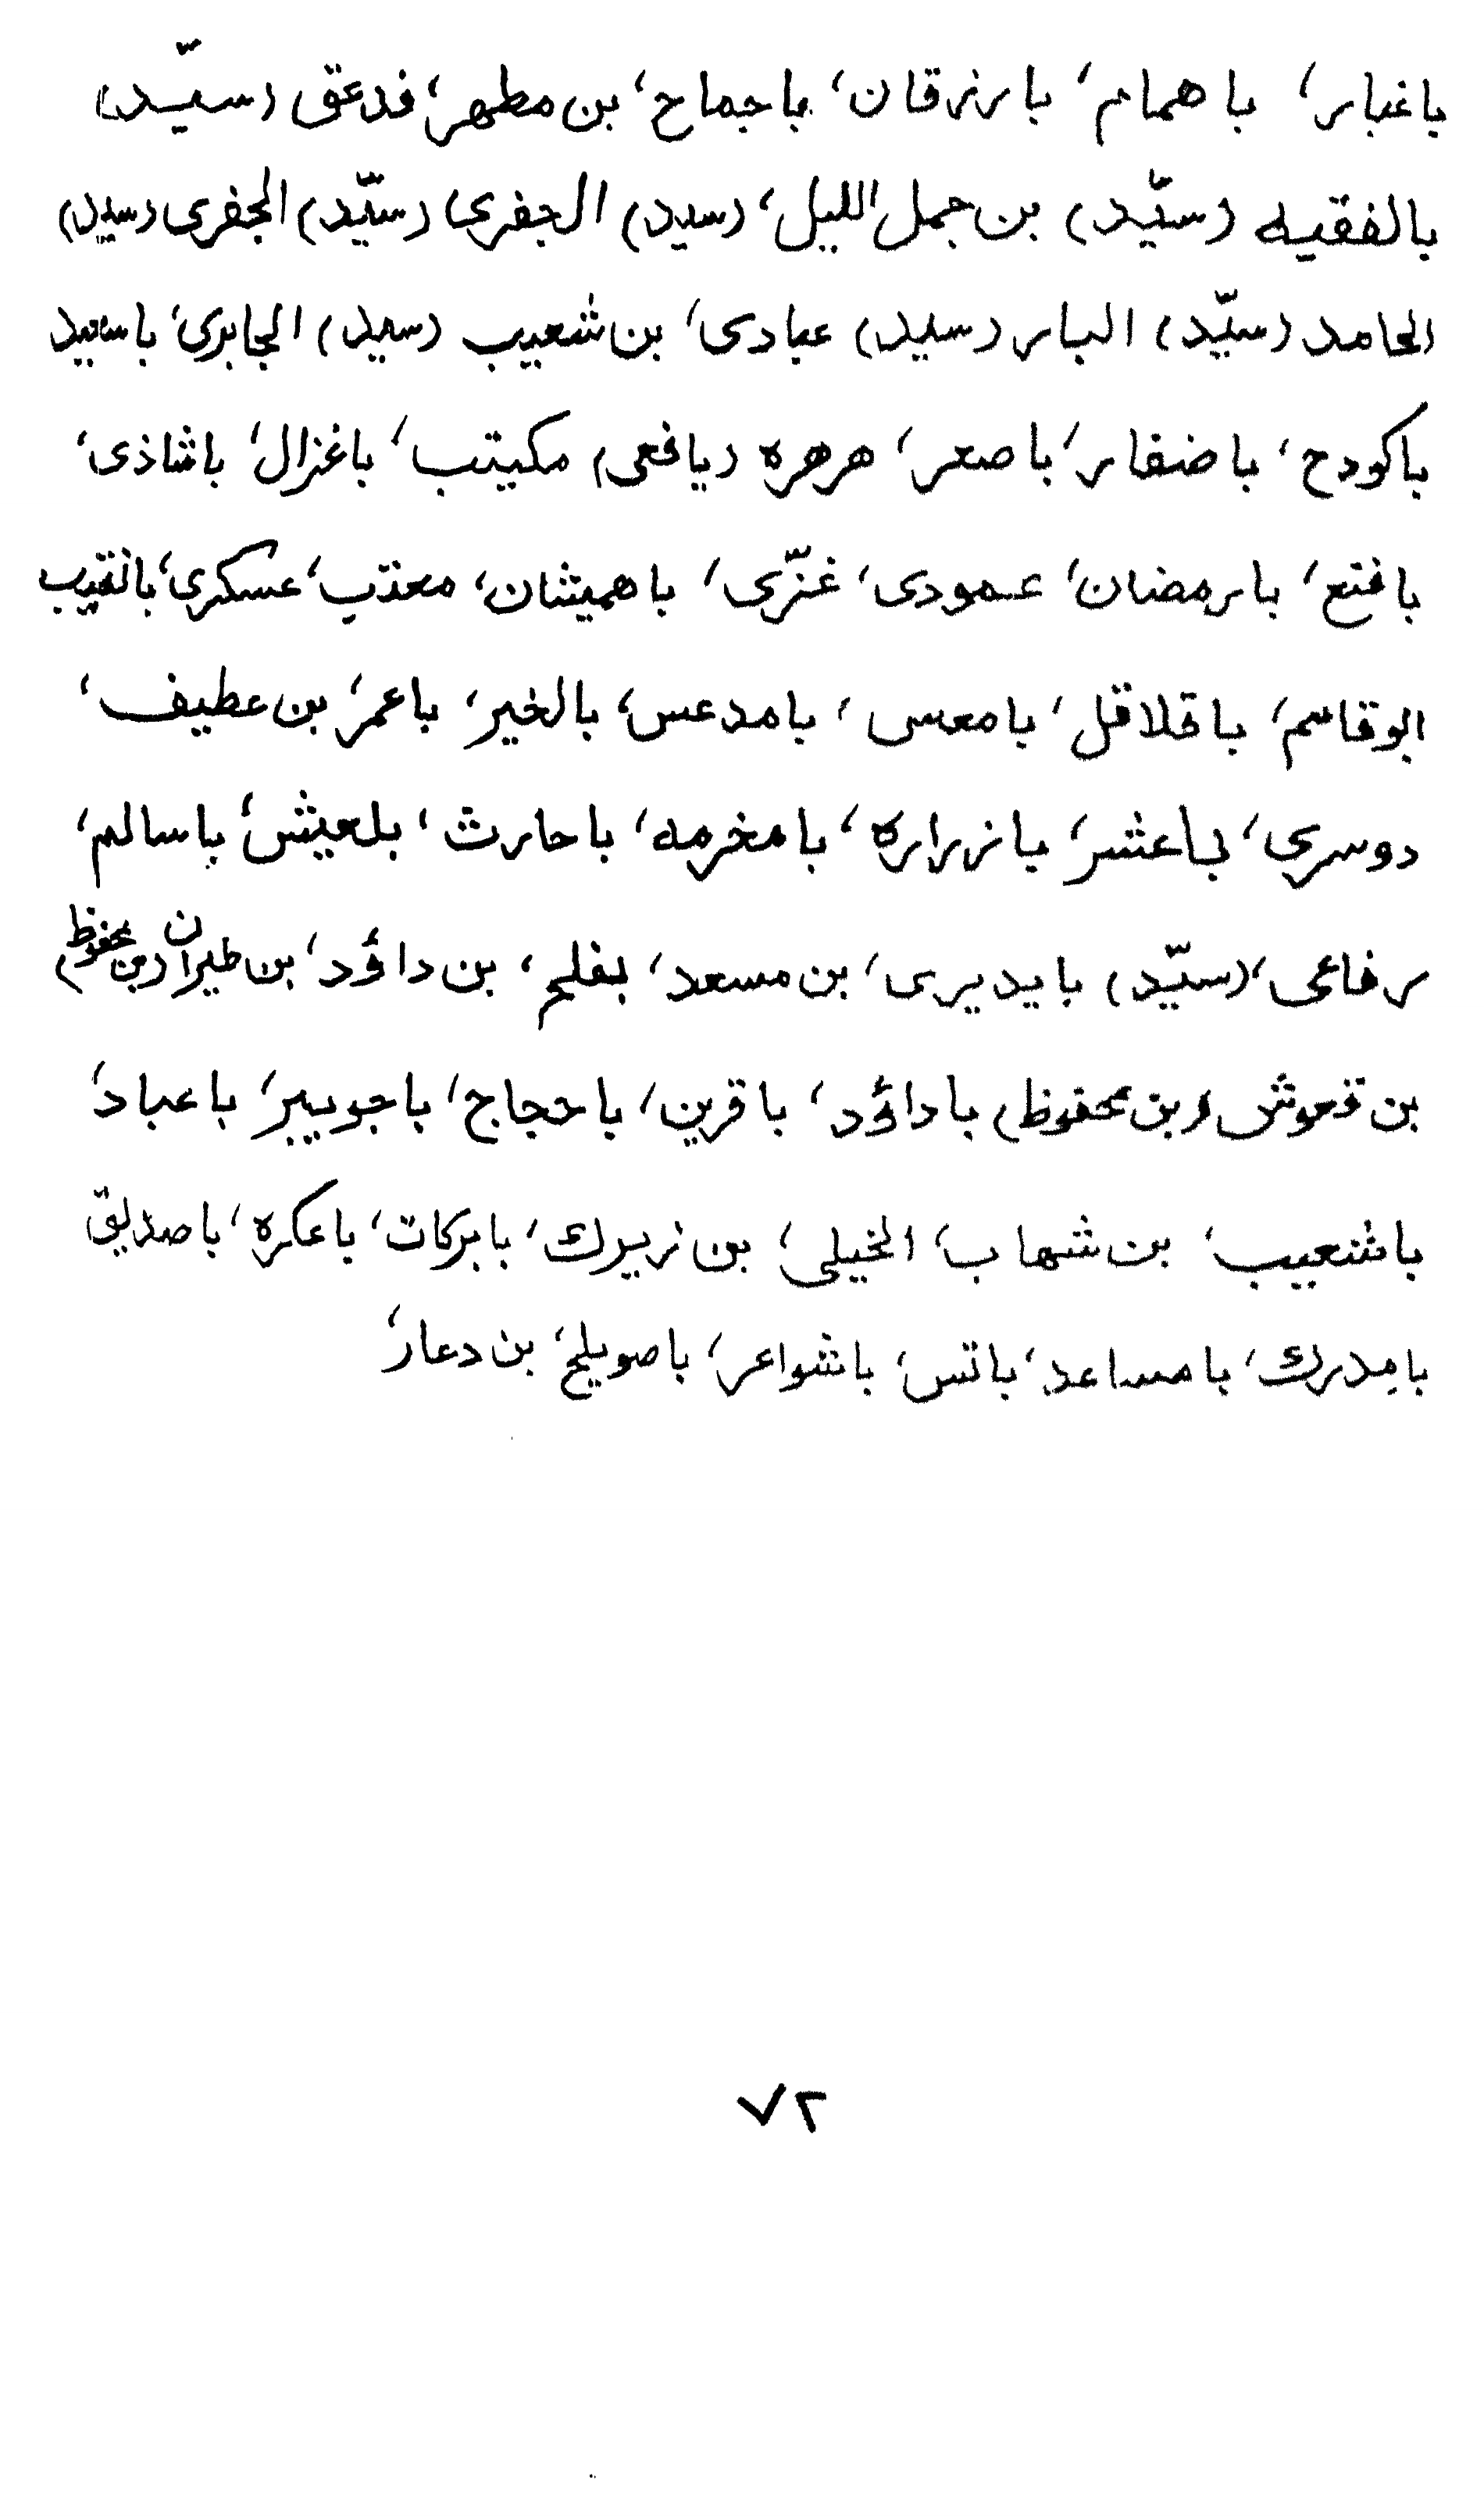 باغبار، باهمام، بارزقان، باجماح، بن مطهر، فدعق (سیّد)
بالفقیه (سیّد) بن جمل اللیل، (سید) الجفری (سیّد) الجفری (سید)
الحامد (سیّد) البار (سید) عبادی، بن شعیب (سید) الجابری، باسعید
باکودح، باضفار، باصعر، هرهره (یافعی) مکیتب، باغزال، باشاذی،
بافتع، بارمضان، عمودی، غزّی، باهمیثان، معذب، عسکری، بانقیب
ابوقاسم، باقلاقل، بامعس، بامدعس، بالخیر، باعمر، بن عطیف،
دوسری، باعشر، بازراره، بامخرمه، باحارث، بلعیش، باسالم،
رفاعی، (سیّد) بایدیری، بن مسعد، بفلح، بن داؤد، بن طیران (بن محفوظ)
بن قحوش (بن محفوظ) باداؤد، باقرین، باحجاج، باجوبیر، باعباد،
باشعیب، بن شهاب، الخیلی، بن زیرک، بابرکات، باعکره، باصدیق
بامدرک، بامساعد، باتس، باشواعر، باصویلح، بن دعار،
۷۲